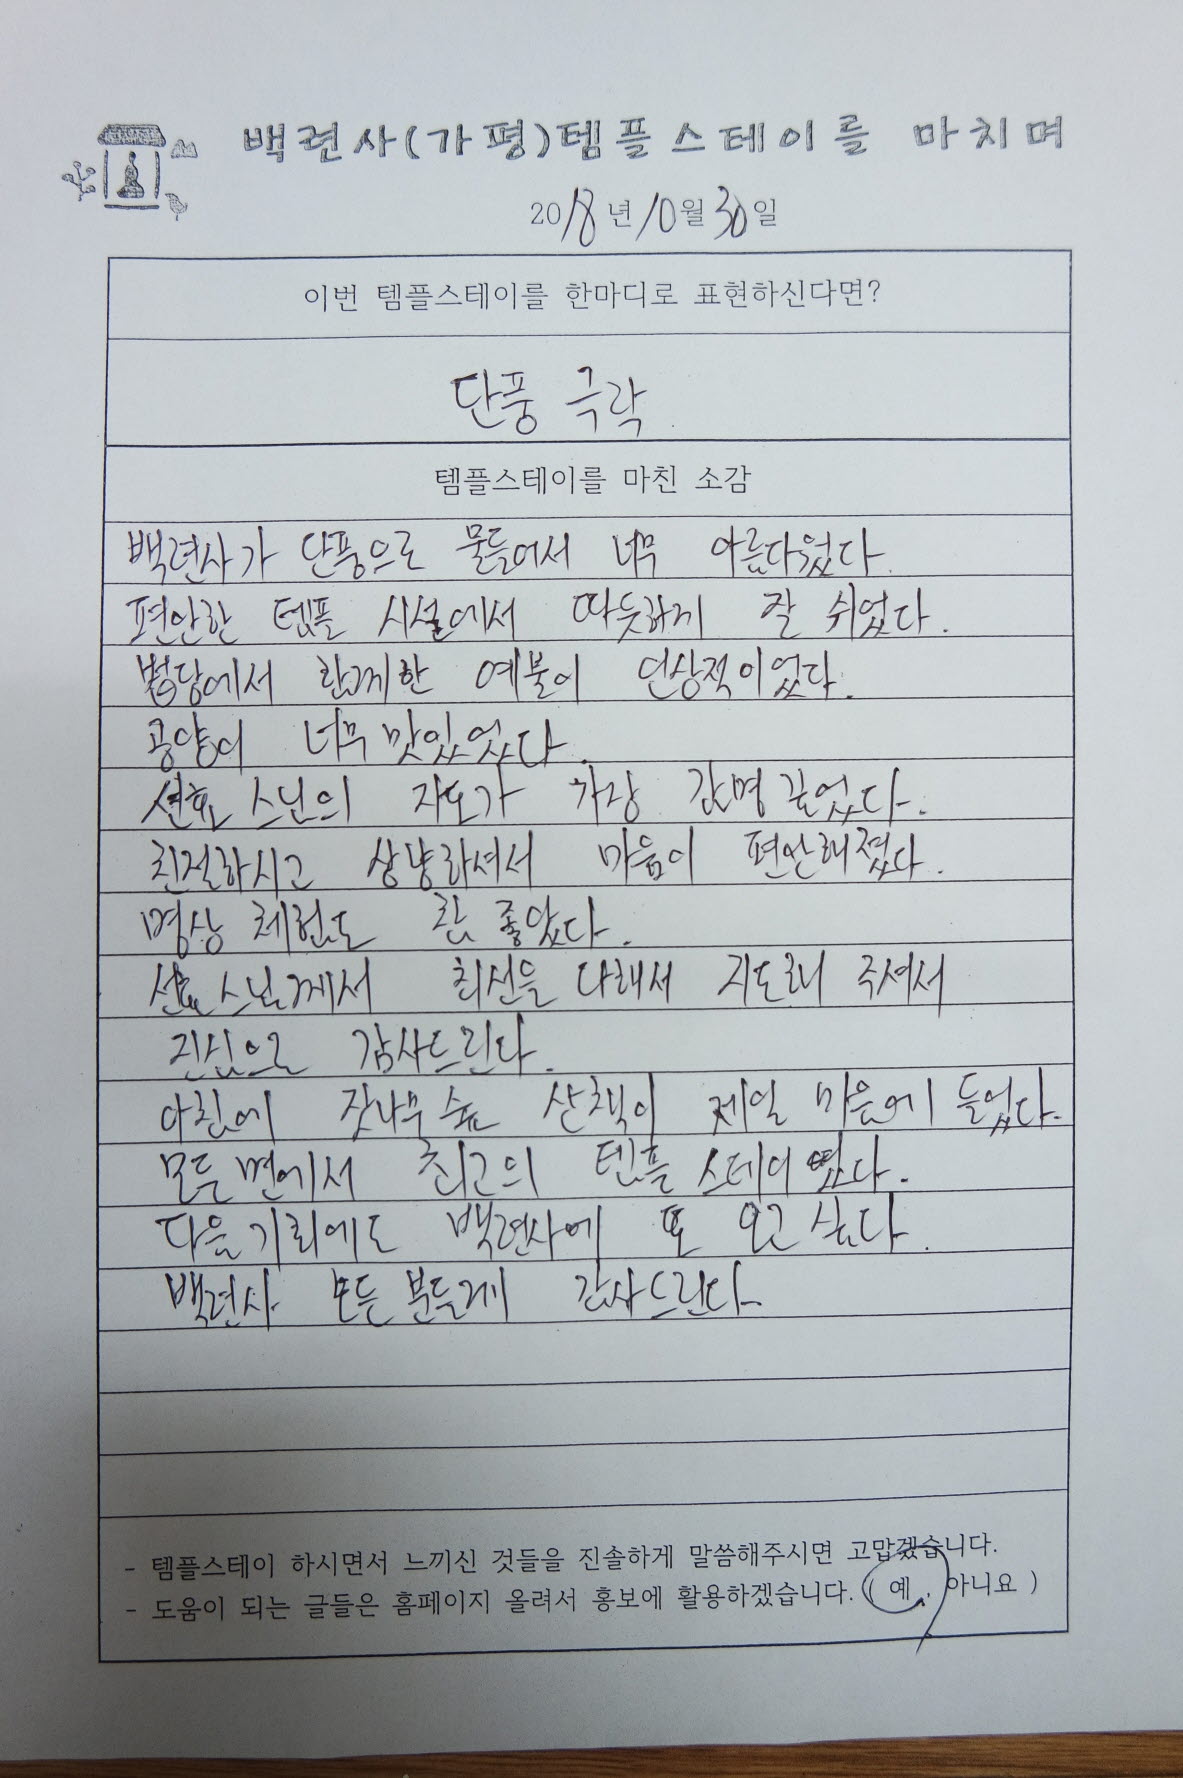 백련사(가평)템플스테이를 마치며
2018년 10월 30일
이번 템플스테이를 한마디로 표현하신다면?
단풍 극락
템플스테이를 마친 소감
백련사가 단풍으로 물들어서 너무 아름다웠다.
편안한 템플 시설에서 따듯하게 잘 쉬었다.
법당에서 함께한 예불이 인상적이었다.
공양이 너무 맛있었다.
선효 스님의 지도가 가장 감명 깊었다.
친절하시고 상냥하셔서 마음이 편안해졌다.
명상 체험도 참 좋았다.
선효 스님께서 최선을 다해서 지도해 주셔서
진심으로 감사드린다.
아침에 잣나무 숲 산책이 제일 마음에 들었다.
모든 면에서 최고의 템플 스테이 였다.
다음 기회에도 백련사에 또 오고 싶다.
백련사 모든 분들께 감사드린다.
- 템플스테이 하시면서 느끼신 것들을 진솔하게 말씀해주시면 고맙겠습니다.
- 도움이 되는 글들은 홈페이지 올려서 홍보에 활용하겠습니다. ( 예 , 아니요 )